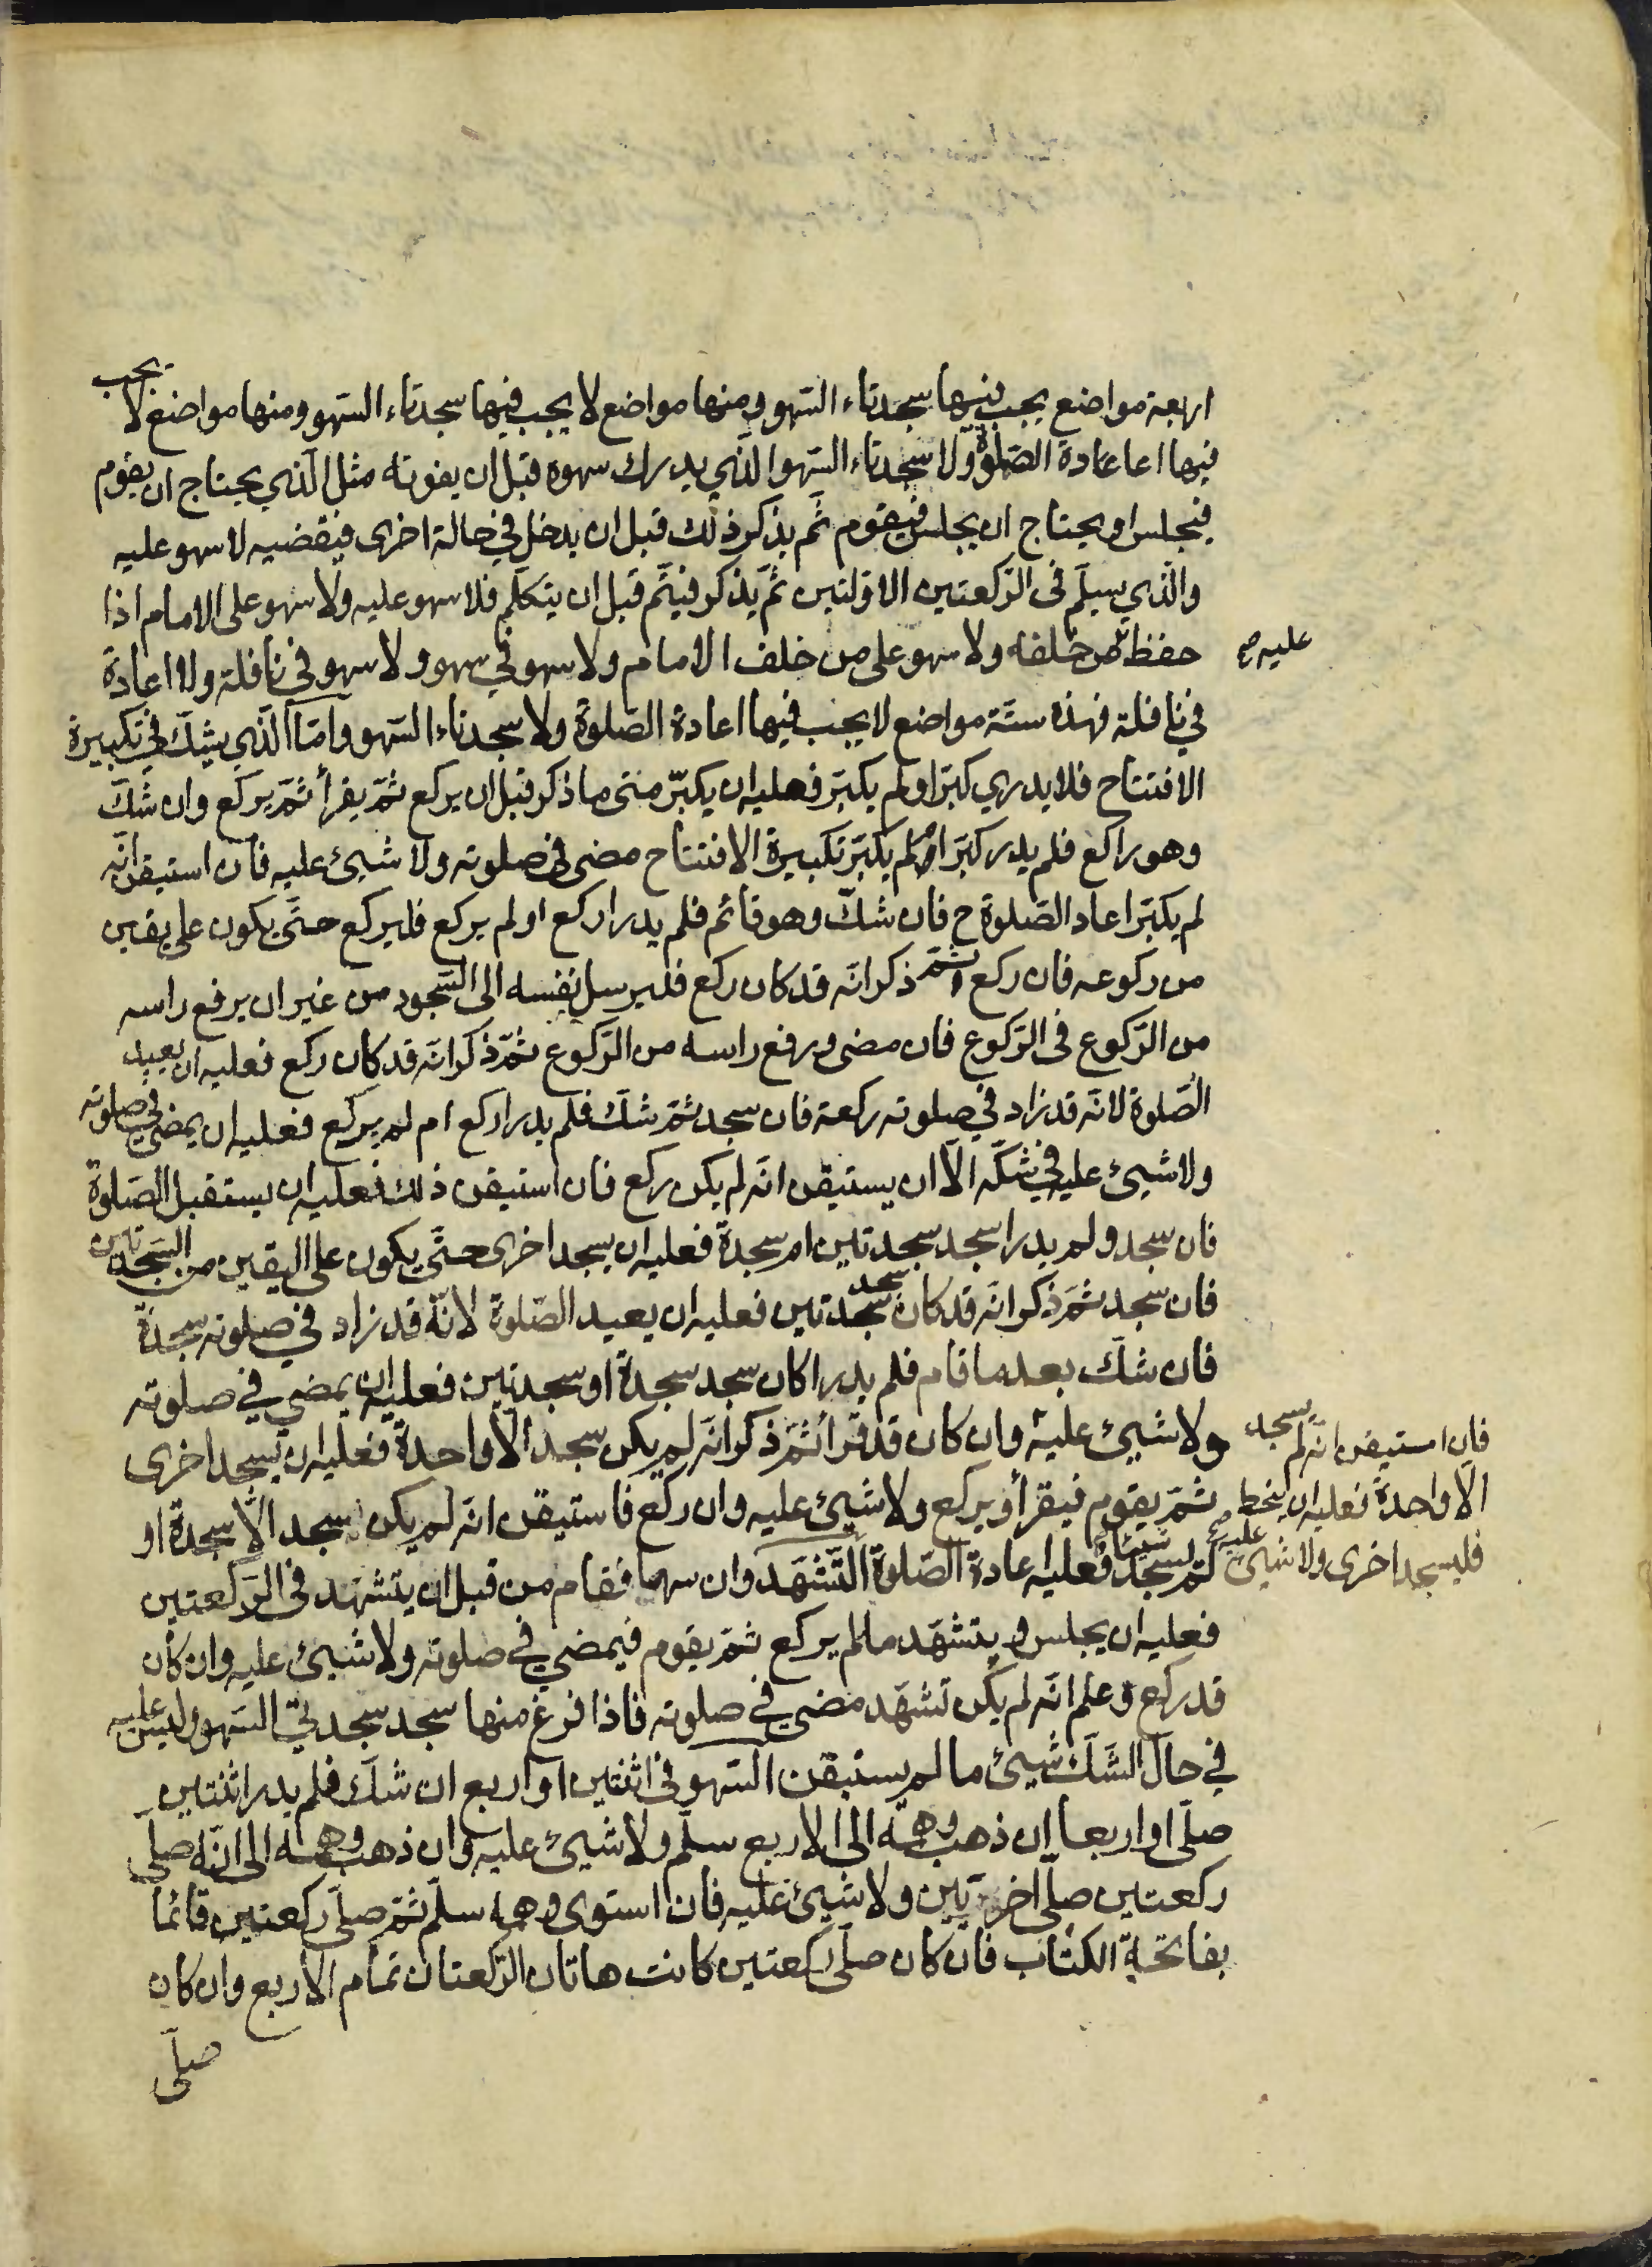 اربعة مواضع يجب فيها سجدتاء السّهو ومنها مواضع لا يجب فيها سجدتاء السّهو ومنها مواضع لا يجب
فيها اعاعادة الصّلوة ولا سجدتاء السّهو الّذي يدرك سهوه قبل ان يفوته مثل الّذي يحتاج ان يقوم
فيجلس او يحتاج ان يجلس فيقوم ثمّ يذكر ذلك قبل ان يدخل في حالة اخرى فيقضيه لا سهو عليه
والّذي يسلّم فى الرّكعتين الاوّلتين ثمّ يذكر فيتّم قبل ان يتكلّم فلا سهو عليه ولا سهو على الامام اذا
حفظ من خلفه ولا سهو على من خلف الامام ولا سهو في سهو ولا سهو في نافلة ولا اعادة
عليه صح
في نافلة فهذه ستّة مواضع لا يجب فيها اعادة الصّلوة ولا سجدتاء السّهو وامّا الّذي يشكّ في تكبيرة
الافتتاح فلا يدري كبّر او لم يكبّر فعليه ان يكبّر متى ما ذكر قبل ان يركع ثمّ يقرأ ثمّ يركع وان شكّ
وهو راكع فلم يدر كبّر او لم يكبّر تكبيرة الافتتاح مضى في صلوته ولا شيئ عليه فان استيقن انّه
لم يكبّر اعاد الصّلوة ح فان شكّ وهو قائم فلم يدر اركع او لم يركع فليركع حتّى يكون على يقين
من ركوعه فان ركع ثمّ ذكر انّه قد كان ركع فليرسل نفسه الى السّجود من غير ان يرفع راسه
من الرّكوع فى الرّكوع فان مضى ورفع راسه من الرّكوع ثمّ ذكر انّه قد كان ركع فعليه ان يعيد
الصّلوة لانّه قد زاد في صلوته ركعة فان سجد ثمّ شكّ فلم يدر اركع ام لم يركع فعليه ان يمضي في صلوته
ولا شيئ عليه في شكّه الّا ان يستيقن انّه لم يكن ركع فان استيقن ذلك فعليه ان يستقبل الصّلوة
فان سجد ولم يدر اسجد سجدتين ام سجدة فعليه ان يسجد اخرى حتّى يكون على اليقين من السّجدتين
فان سجد ثمّ ذكر انّه قد كان سجد سجدتين فعليه ان يعيد الصّلوة لانّه قد زاد في صلوته سجدة
فان شكّ بعد ما قام فلم يدر اكان سجد سجدة او سجدتين فعليه ان يمضي في صلوته
ولا شيئ عليه وان كان قد قرأ ثمّ ذكر انّه لم يكن سجد الّا واحدة فعليه ان يسجد اخرى
ثمّ يقوم فيقرأ ويركع ولا شيئ عليه وان ركع فاستيقن انّه لم يكن سجد الّا سجدة او
لم يسجد شيئا فعليه اعادة الصّلوة التّشهّد وان سها فقام من قبل ان يتشهّد فى الرّكعتين
فان استيقن انّه لم يسجد
الّا واحدة فعليه ان ينحط
فليسجد اخرى ولا شيئ عليه صح
فعليه ان يجلس ويتشهّد ما لم يركع ثمّ يقوم فيمضي في صلوته ولا شيئ عليه وان كان
قد ركع وعلم انّه لم يكن تشهّد مضي في صلوته فاذا فرغ منها سجد سجدتي السّهو وليس عليه
في حال الشّكّ شيئ ما لم يستيقن السّهو في اثنتين او اربع ان شكّ فلم يدر اثنتين
صلّى او اربعا ان ذهب وهمه الى الاربع سلّم ولا شيئ عليه وان ذهب وهمه الى انّه صلّى
ركعتين صلّى اخريين ولا شيئ عليه فان استوى وهمه سلّم ثمّ صلّى ركعتين قائما
بفاتحة الكتاب فان كان صلّى ركعتين كانت هاتان الرّكعتان تمام الاربع وان كان
صلّى